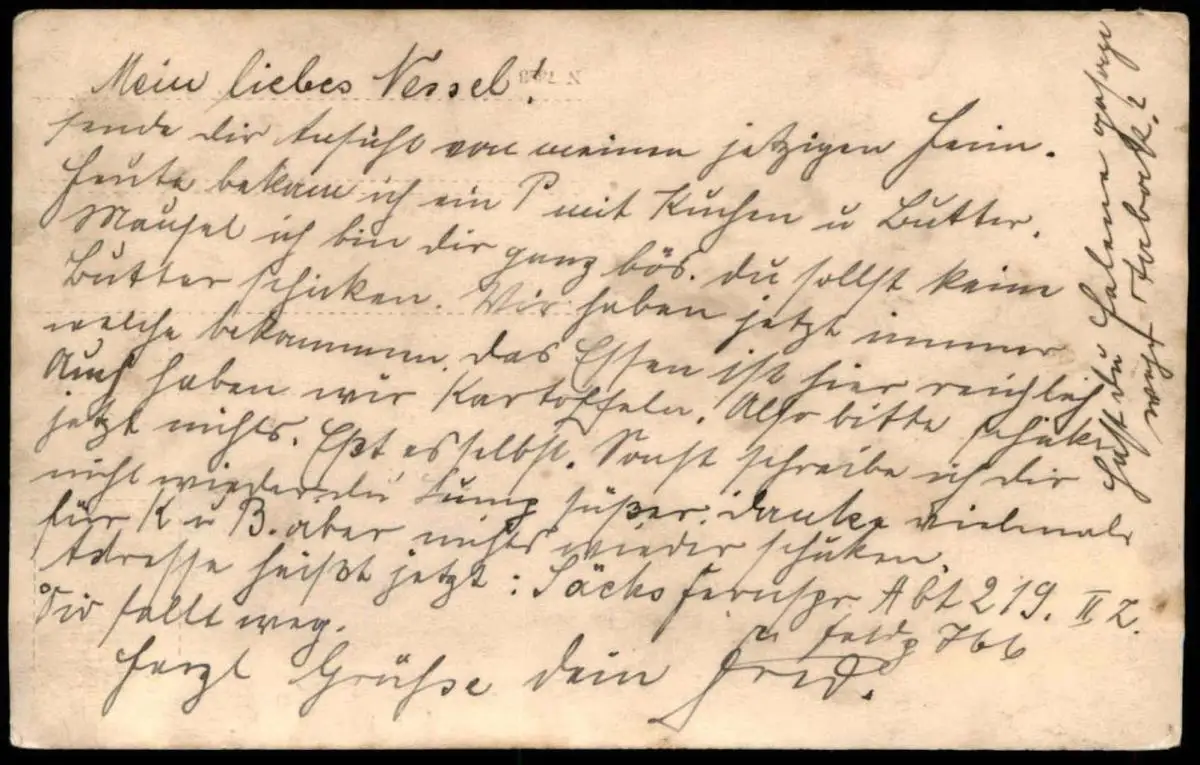 Mein liebes Nessel!
sende dir Ansicht von meinem jetzigen Heim.
Heute bekam ich ein P mit Kuchen u Butter.
Mausel ich bin dir ganz bös. du sollst keine
Butter schicken. Wir haben jetzt immer
welche bekommen. das Essen ist hier reichlich
Auch haben wir Kartoffeln. Also bitte schicke
jetzt nichts. Eßt es selbst. Sonst schreibe ich dir
nicht wieder. du Lump süßer. danke vielmals
für K u B. aber nichts wieder schicken.
Adresse heißt jetzt: Sächs Fernspr Abt 219. II Z.
Div fällt weg.
u Feldp 766
Herzl Grüße dein Fried.
Hast du Helene gesagt
wegen Tabak?